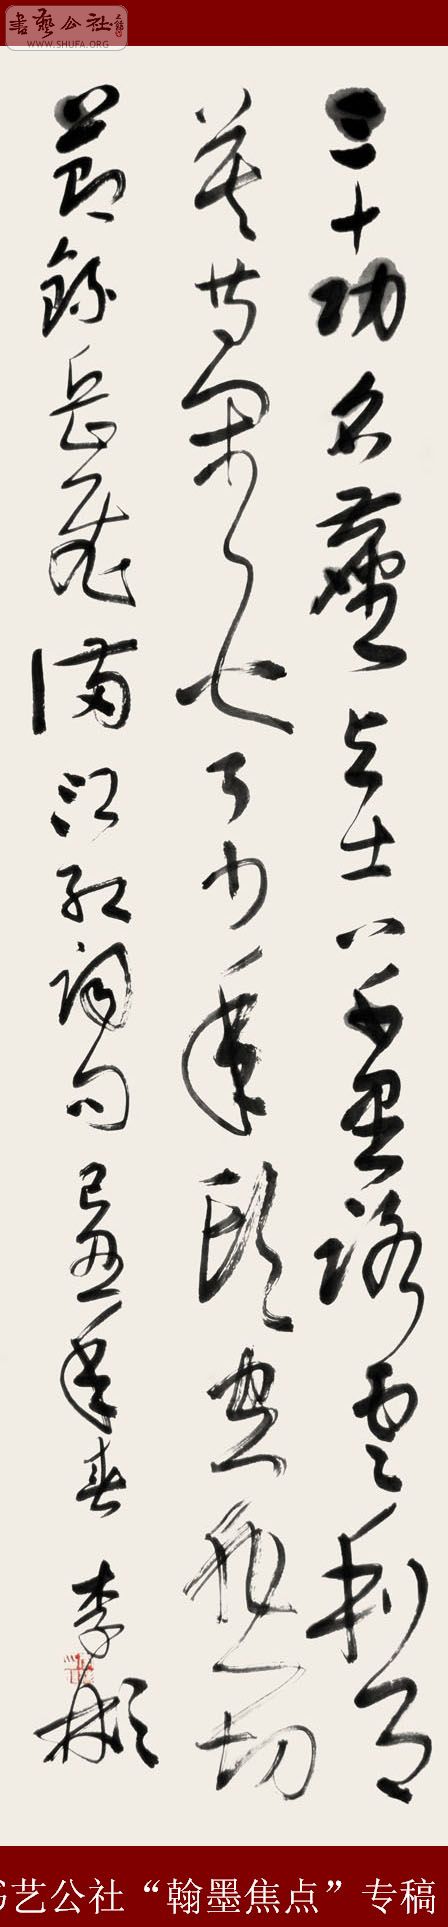 書藝公社
WWW.SHUFA.ORG
三十功名塵与土八千里路雲和月
莫等閑白了少年頭空悲切
節錄岳飛滿江紅詞句己丑年春李彬
书艺公社“翰墨焦点”专稿